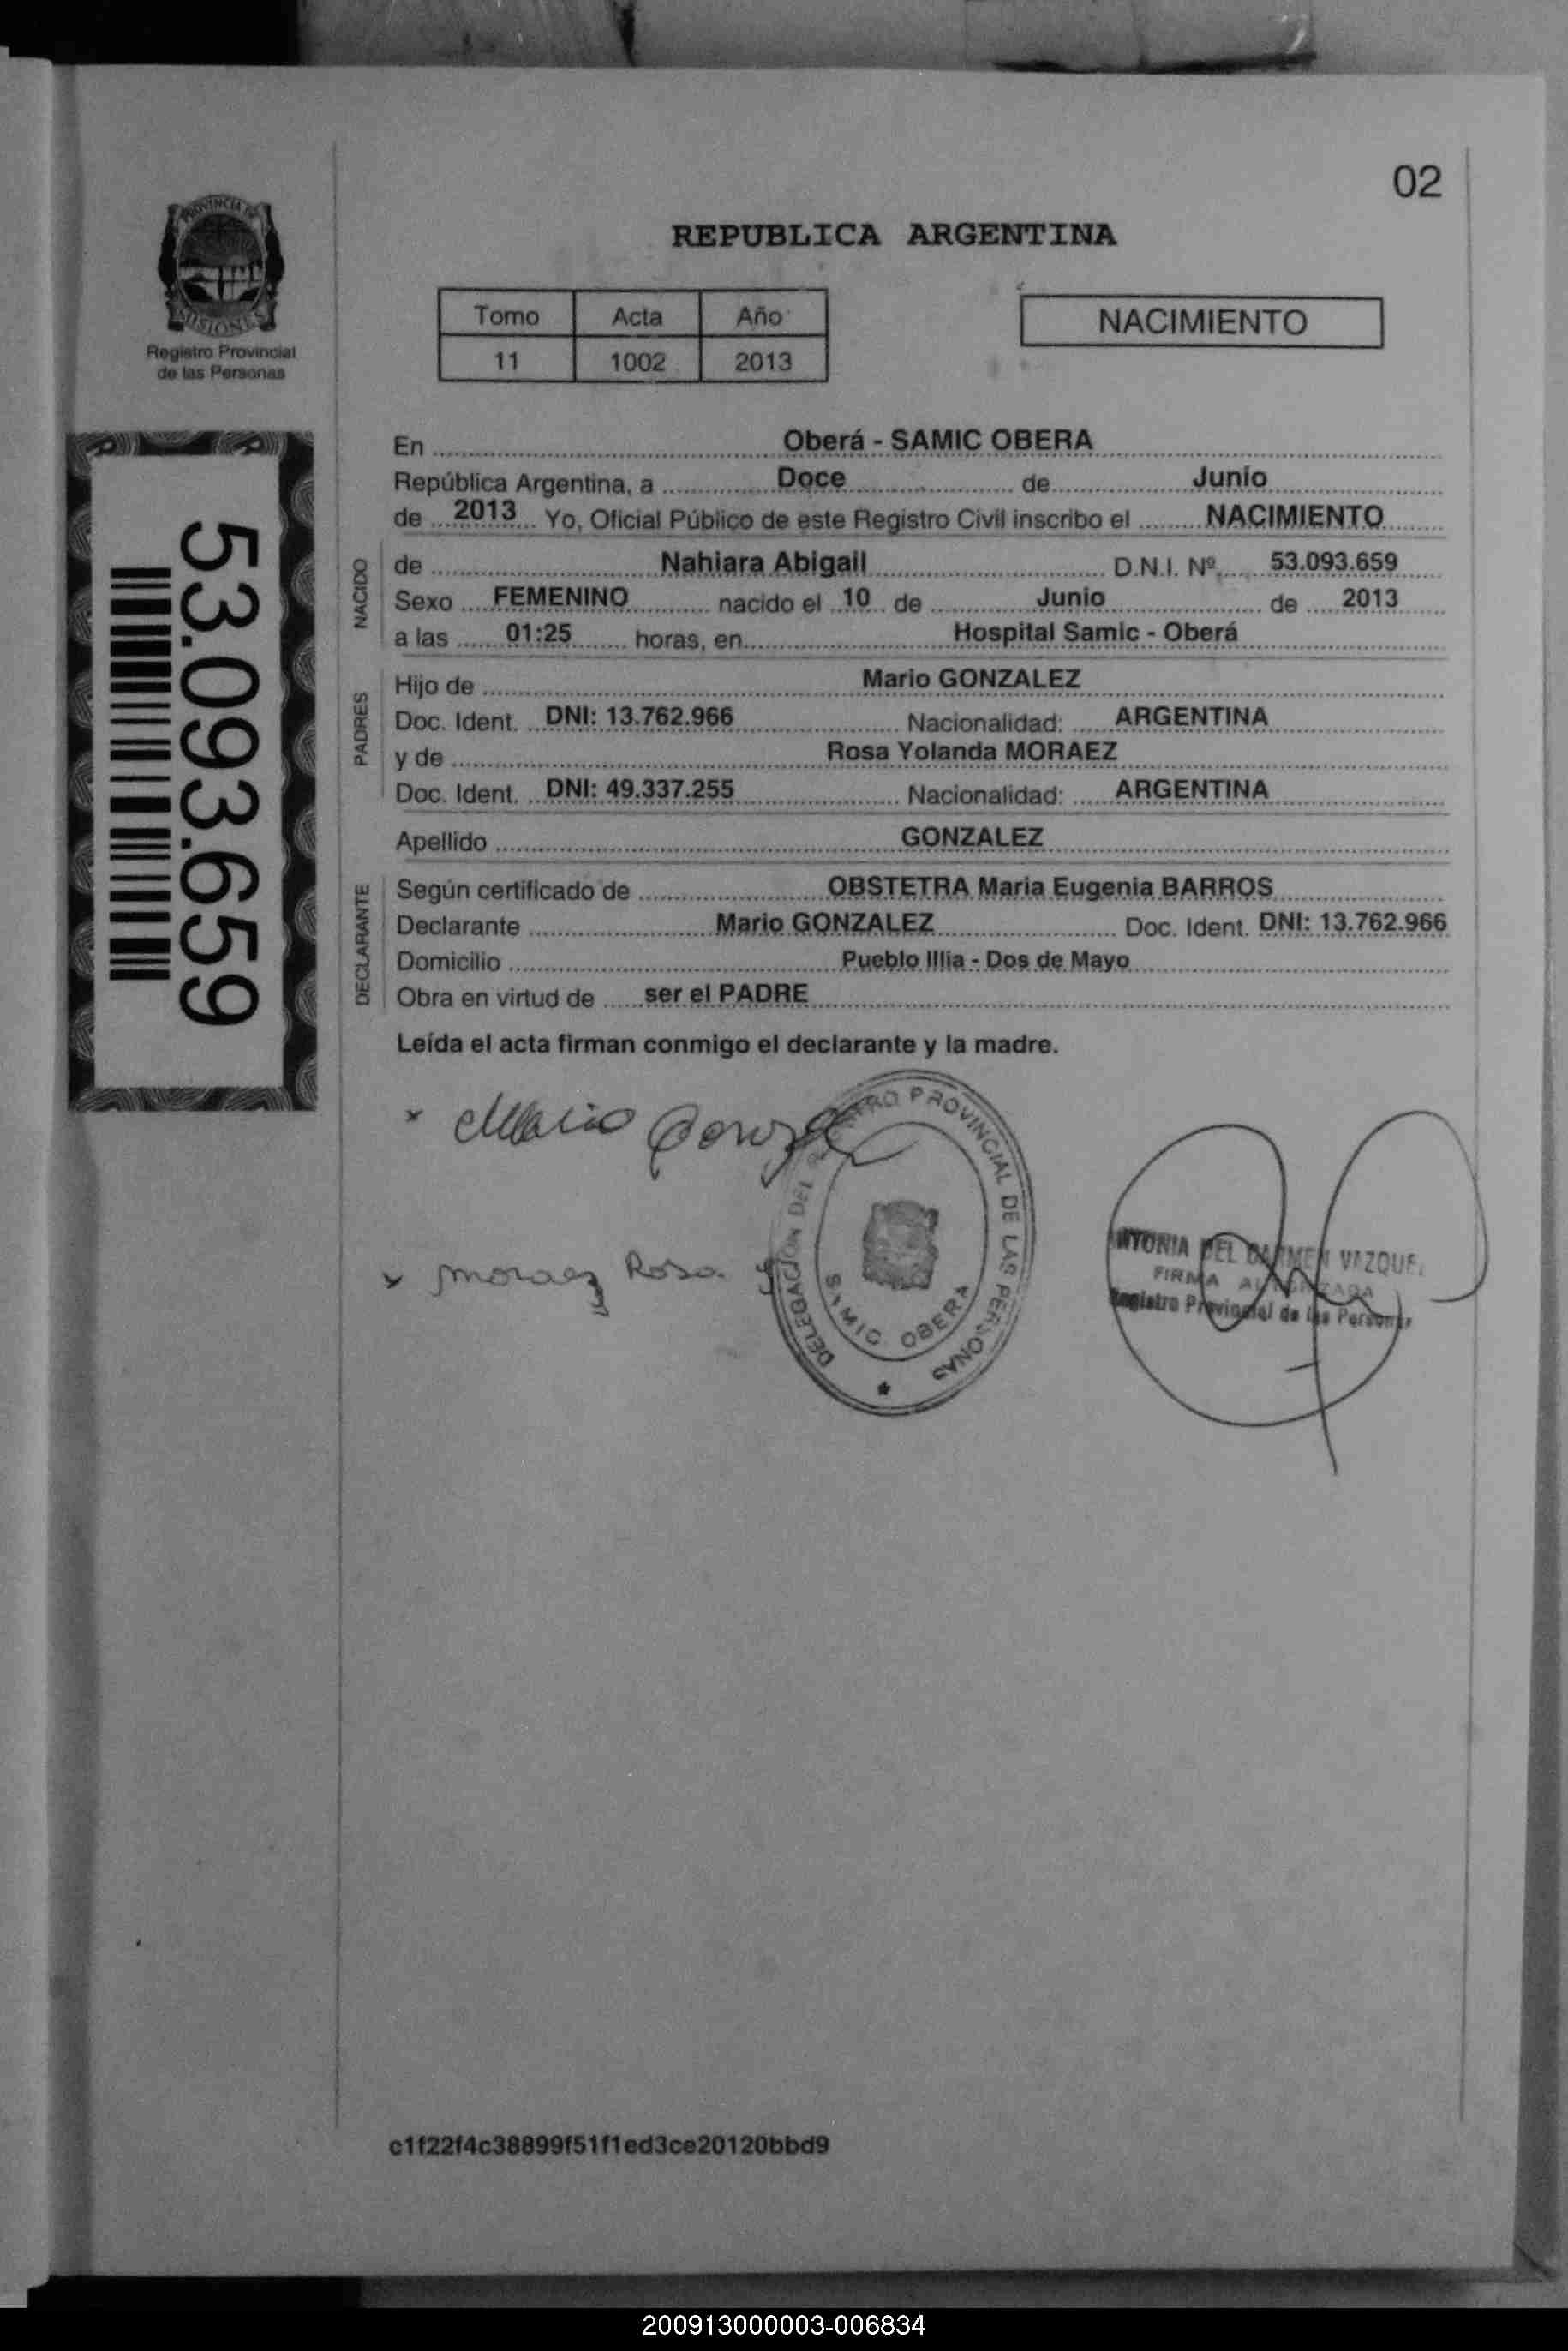 02
PROVINCIA DE
MISIONES
Registro Provincial
de las Personas
REPUBLICA ARGENTINA
Tomo Acta Año
11 1002 2013
NACIMIENTO
53.093.659
En Oberá - SAMIC OBERA
República Argentina, a Doce de Junio
de 2013 Yo, Oficial Público de este Registro Civil inscribo el NACIMIENTO
NACIDO
de Nahiara Abigail D.N.I. Nº 53.093.659
Sexo FEMENINO nacido el 10 de Junio de 2013
a las 01:25 horas, en Hospital Samic - Oberá
PADRES
Hijo de Mario GONZALEZ
Doc. Ident. DNI: 13.762.966 Nacionalidad: ARGENTINA
y de Rosa Yolanda MORAEZ
Doc. Ident. DNI: 49.337.255 Nacionalidad: ARGENTINA
Apellido GONZALEZ
DECLARANTE
Según certificado de OBSTETRA Maria Eugenia BARROS
Declarante Mario GONZALEZ Doc. Ident. DNI: 13.762.966
Domicilio Pueblo Illia - Dos de Mayo
Obra en virtud de ser el PADRE
Leída el acta firman conmigo el declarante y la madre.
x Mario
x Moraez Rosa Y
DELEGACION DEL PROVINCIAL DE LAS PERSONAS
SAMIC OBERA
DEL CARMEN
FIRMA AUTORIZADA
Registro Provincial de las Personas
c1f22f4c38899f51f1ed3ce20120bbd9
200913000003-006834